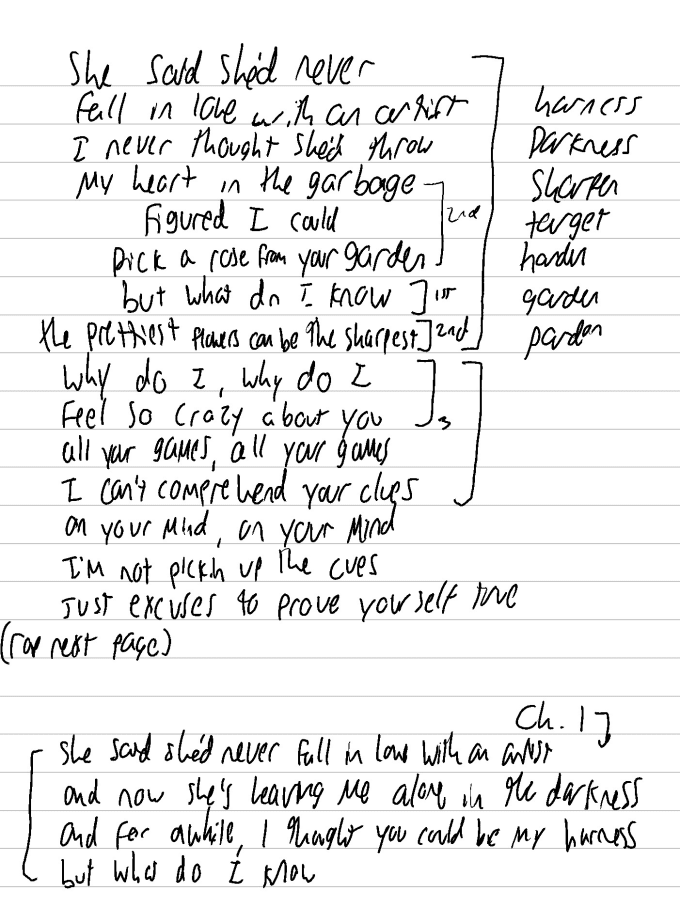 She said she'd never
fall in love with an artist
I never thought she'd throw
My heart in the garbage
figured I could
pick a rose from your garden
2nd
but what do I know
1st
the prettiest flowers can be the sharpest
2nd
harness
Darkness
Sharpen
target
harden
garden
pardon
Why do I, why do I
Feel so crazy about you
3
all your games, all your games
I can't comprehend your clues
on your Mind, on your Mind
I'm not pickin up the cues
Just excuses to prove yourself true
(next page)
Ch. 1
She said she'd never fall in love with an artist
and now she's leaving me alone in the darkness
and for awhile, I thought you could be my harness
but what do I know